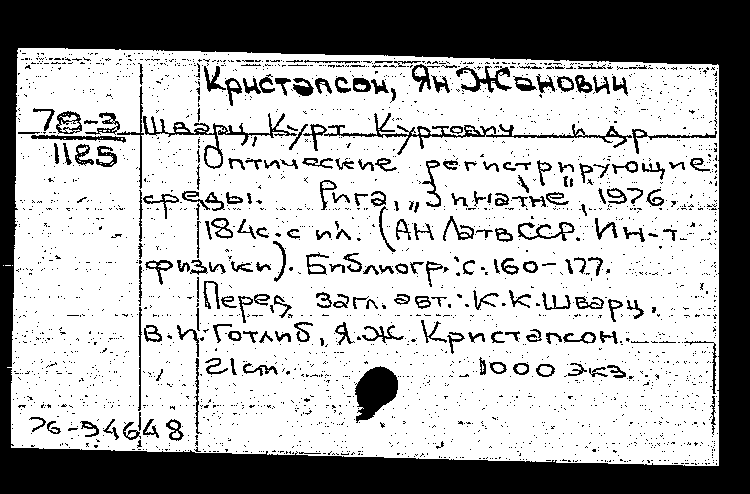 Кристапсон, Ян Жанович
78-3
1125
Шварц, Курт Куртович и др.
Оптические регистрирующие
среды. Рига, „Зинатне", 1976.
184с. с ил. (АН ЛатвССР. Ин-т
физики). Библиогр.: с. 160-177.
Перед загл. авт.: К.К.Шварц,
В.И. Готлиб, Я.Ж. Кристапсон.
21см. 1000 экз.
76-94648